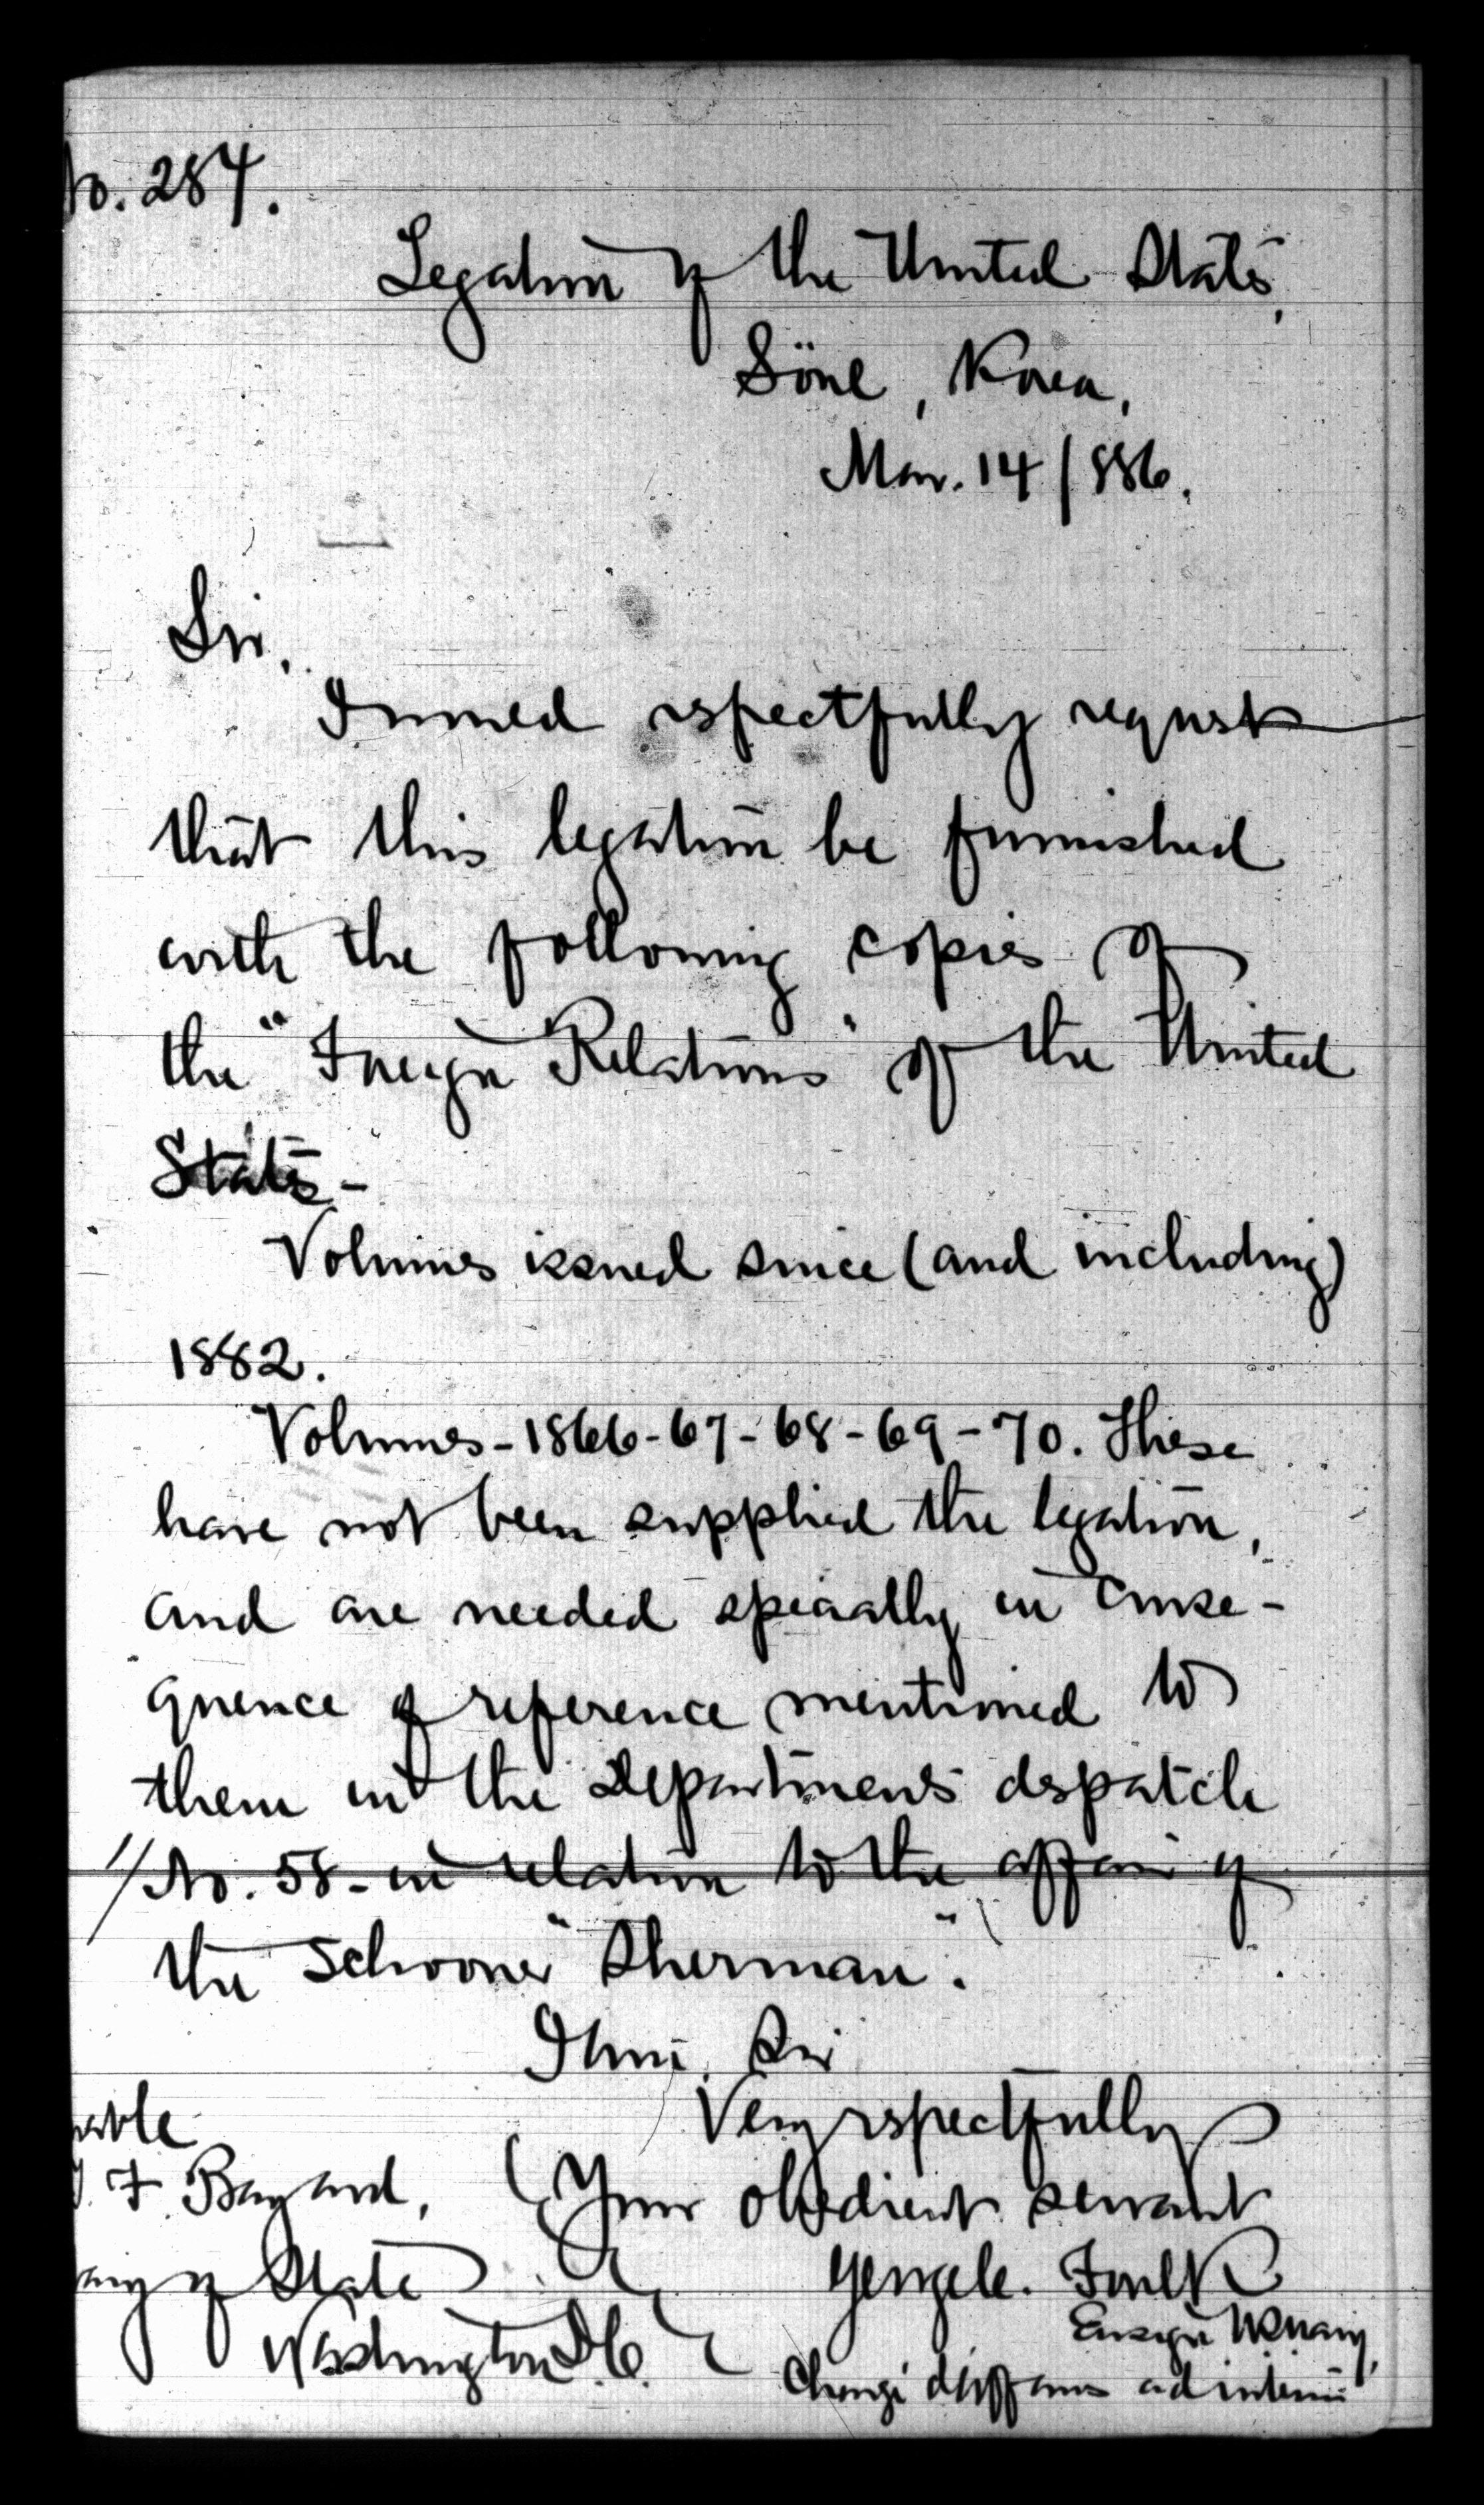 No. 284.
Legation of the United States,
Söul, Korea,
Mar. 14/886.
Sir,
I would respectfully request
that this legation be furnished
with the following copies of
the "Foreign Relations" of the United
States -
Volumes issued since (and including)
1882.
Volumes - 1866 - 67 - 68 - 69 - 70. These
have not been supplied the legation,
and are needed specially in conse-
quence of reference mentioned to
them in the Department's despatch
No. 58 - in relation to the affair of
the Schooner "Sherman".
I am, Sir
Very respectfully
Your obedient servant
George C. Foulk
Ensign U.S. Navy,
Chargé d'affaires ad interim
rable
T. F. Bayard,
ary of State
Washington D.C.